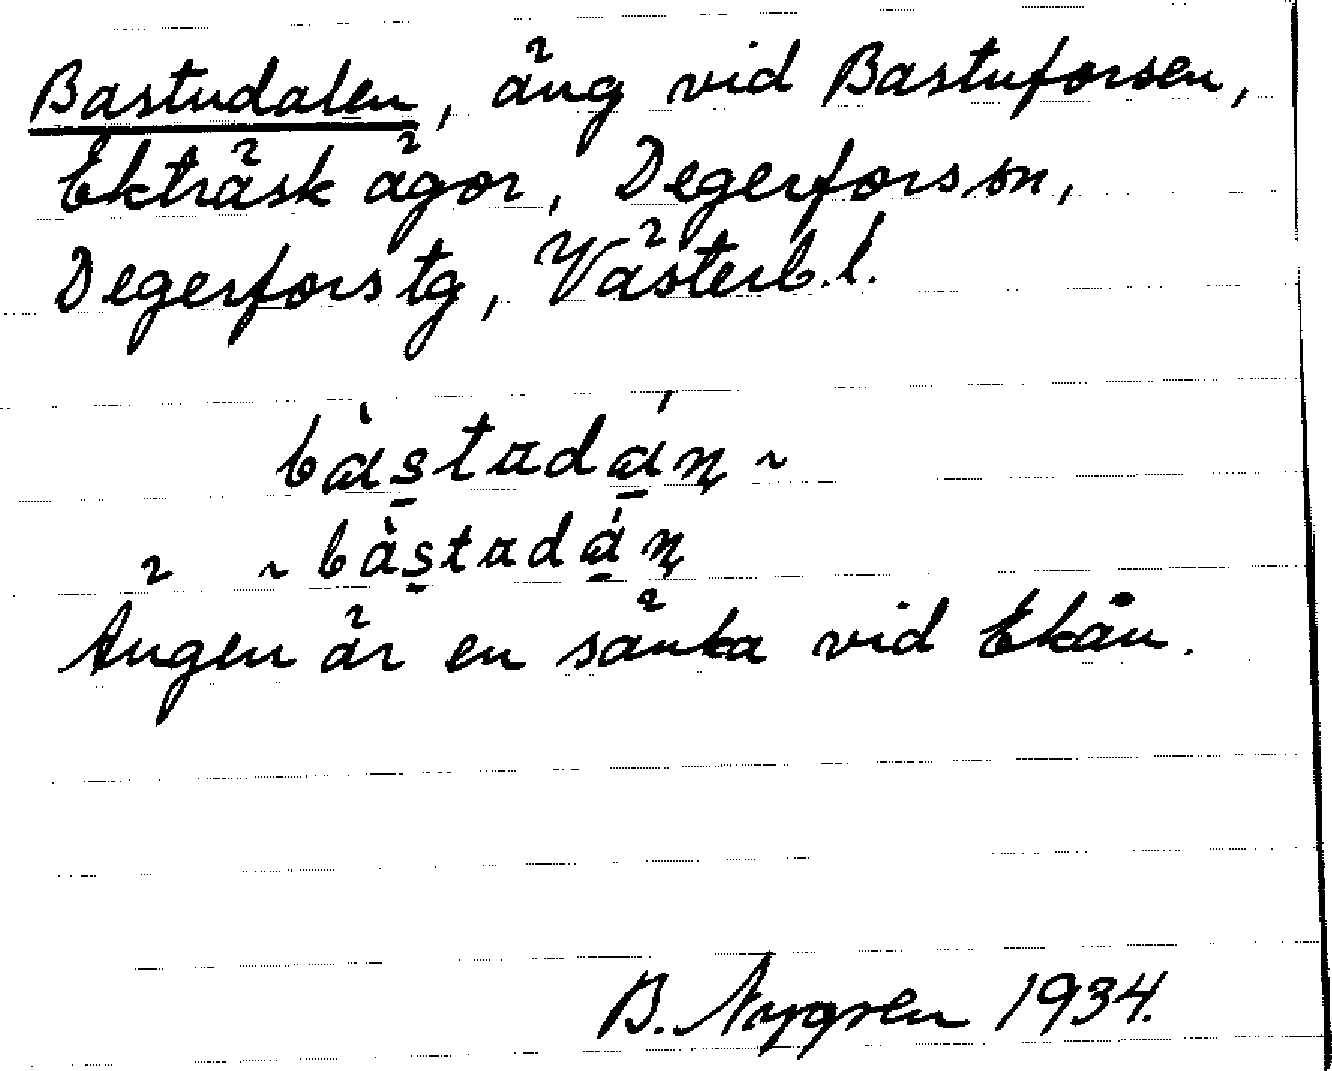 Bastudalen, äng vid Bastuforsen,
Ekträsk ägor, Degerfors sn,
Degerfors tg, Västerb. l.
bàs̱tadá̱n̥ ~
~ bàs̱tadá̱n̥
Ängen är en sänka vid Ekån.
B. Nygren 1934.